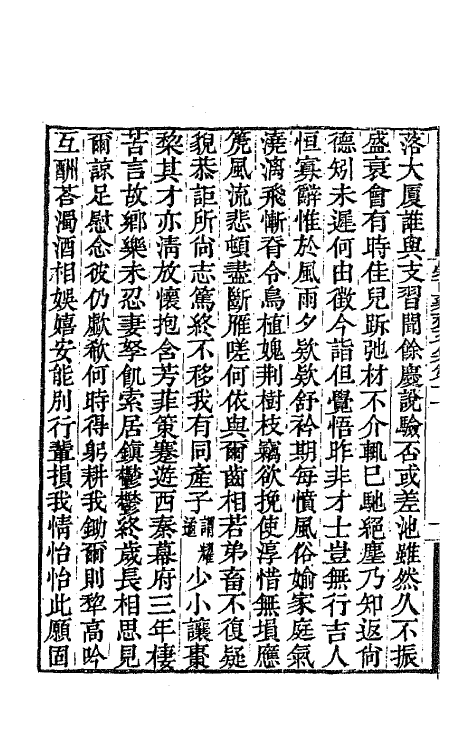 落大厦誰與支習聞餘慶說驗否或差池雖然久不振
盛衰會有時佳兒跅弛材不介輒已馳絕塵乃知返尙
德矧未遲何由徵今詣但覺悟昨非才士豈無行吉人
恒寡辭惟於風雨夕欵欵舒衿期每憤風俗媮家庭氣
澆漓飛慚脊令鳥植媿荆樹枝竊欲挽使淳惜無塤應
箎風流悲頓盡斷雁嗟何依與爾齒相若弟畜不復疑
貌恭詎所尙志篤終不移我有同產子謂耀遹少小讓棗
棃其才亦淸放懷抱含芳菲策蹇遊西秦幕府三年棲
苦言故鄉樂未忍妻孥飢索居鎮鬱鬱終歲長相思見
爾諒足慰念彼仍歔欷何時得躬耕我鋤爾則犂高吟
互酬荅濁酒相娛嬉安能別行輩損我情怡怡此願固